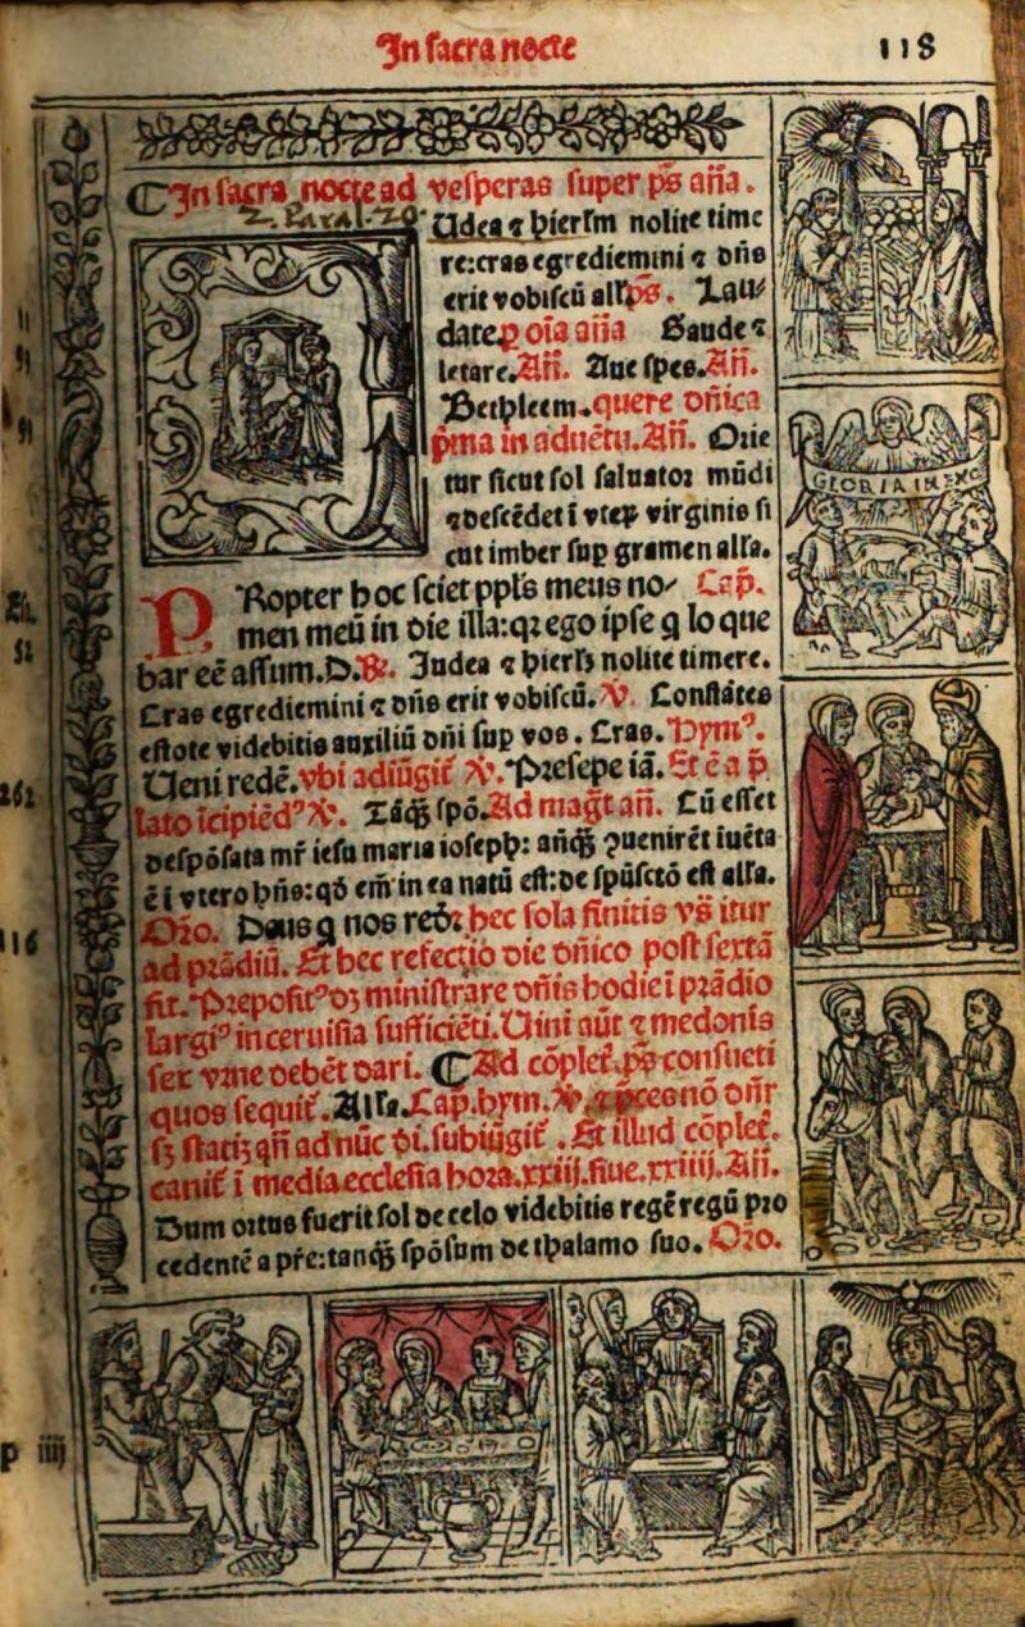 In sacra nocte
118
¶ In sacra nocte ad vesperas super ps̄ an̄a.
2. Paral. 20.
Udea ⁊ hierłm nolite time
re: cras egrediemini ⁊ dn̄s
erit vobiscū all'. ps̄. Lau⸗
date. ꝑ oīa an̄a Gaude ⁊
letare. An̄. Aue spes. An̄.
Bethleem. quere dn̄ica
p̄ma in aduētu. An̄. Orie
tur sicut sol saluator mūdi
⁊ descēdet ī vteꝝ virginis si
cut imber suꝑ gramen alľa.
PRopter hoc sciet ppl's meus no⸗ Cap̄.
men meū in die illa: qꝛ ego ipse q̄ lo que
bar eē assum. D. ℟. Judea ⁊ hierłꝫ nolite timere.
Cras egrediemini ⁊ dn̄s erit vobiscū. ℣. Constātes
estote videbitis auxiliū dn̄i suꝑ vos. Cras. Hymꝰ.
Ueni redē. vbi adiūgit' ℣. Presepe iā. Et ē a p̄
lato īcipiēdꝰ ℣. Tāꝙ̄ spō. Ad maḡt an̄. Cū esset
despōsata mr̄ iesu maria ioseph: an̄ꝙ̄ ꝯuenirēt iuēta
ē ī vtero hn̄s: qd̄ em̄ in ea natū est: de spūsctō est alľa.
Oro. Deus q̄ nos red'. hec sola finitis vs̄ itur
ad prādiū. Et hec refectio die dn̄ico post sextā
fit. Prepositꝰ dꝫ ministrare dn̄is hodie ī prādio
largiꝰ in ceruisia sufficiēti. Uini aūt ⁊ medonis
sex vrne debēt dari. ¶ Ad cōplet'. ps̄ consueti
quos sequit'. Alľa. Cap̄. hym. ℣. ⁊ p̄ces nō dn̄r
sꝫ statiꝫ an̄ ad nūc di. subiūgit'. Et illud cōplet'.
canit' ī media ecclesia hora. xxiij. siue. xxiiij. An̄.
Dum ortus fuerit sol de celo videbitis regē regū pro
cedentē a pr̄e: tanꝙ̄ spōsum de thalamo suo. Oro.
11
91
91
Esa.
52
262
116
p iiij
GLORIA IN EXC